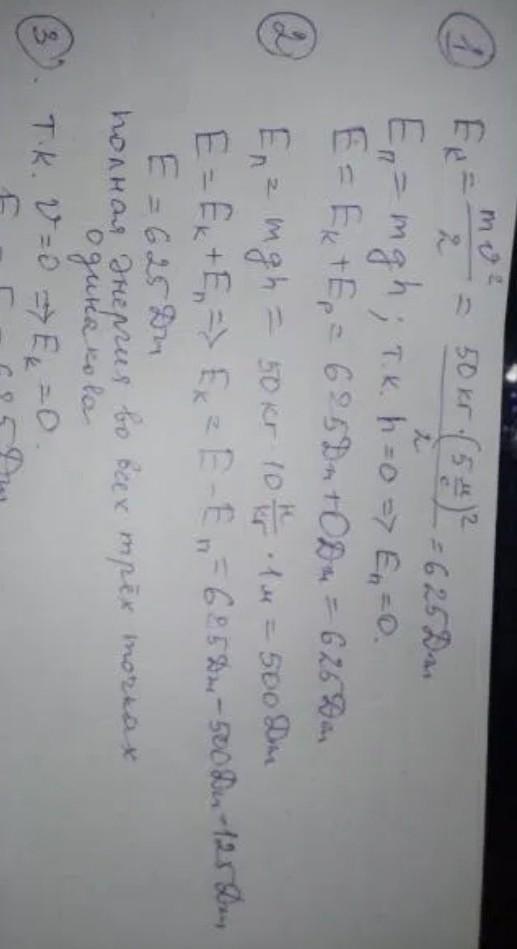 ① E_k = mv²/2 = 50 кг · (5 м/с)²/2 = 625 Дж
E_п = mgh; т.к. h=0 => E_п = 0.
E = E_k + E_p = 625 Дж + 0 Дж = 625 Дж
② E_п = mgh = 50 кг · 10 н/кг · 1 м = 500 Дж
E = E_k + E_п => E_k = E - E_п = 625 Дж - 500 Дж = 125 Дж
E = 625 Дж
полная энергия во всех трёх точках
одинакова
③ т.к. v=0 => E_k = 0.